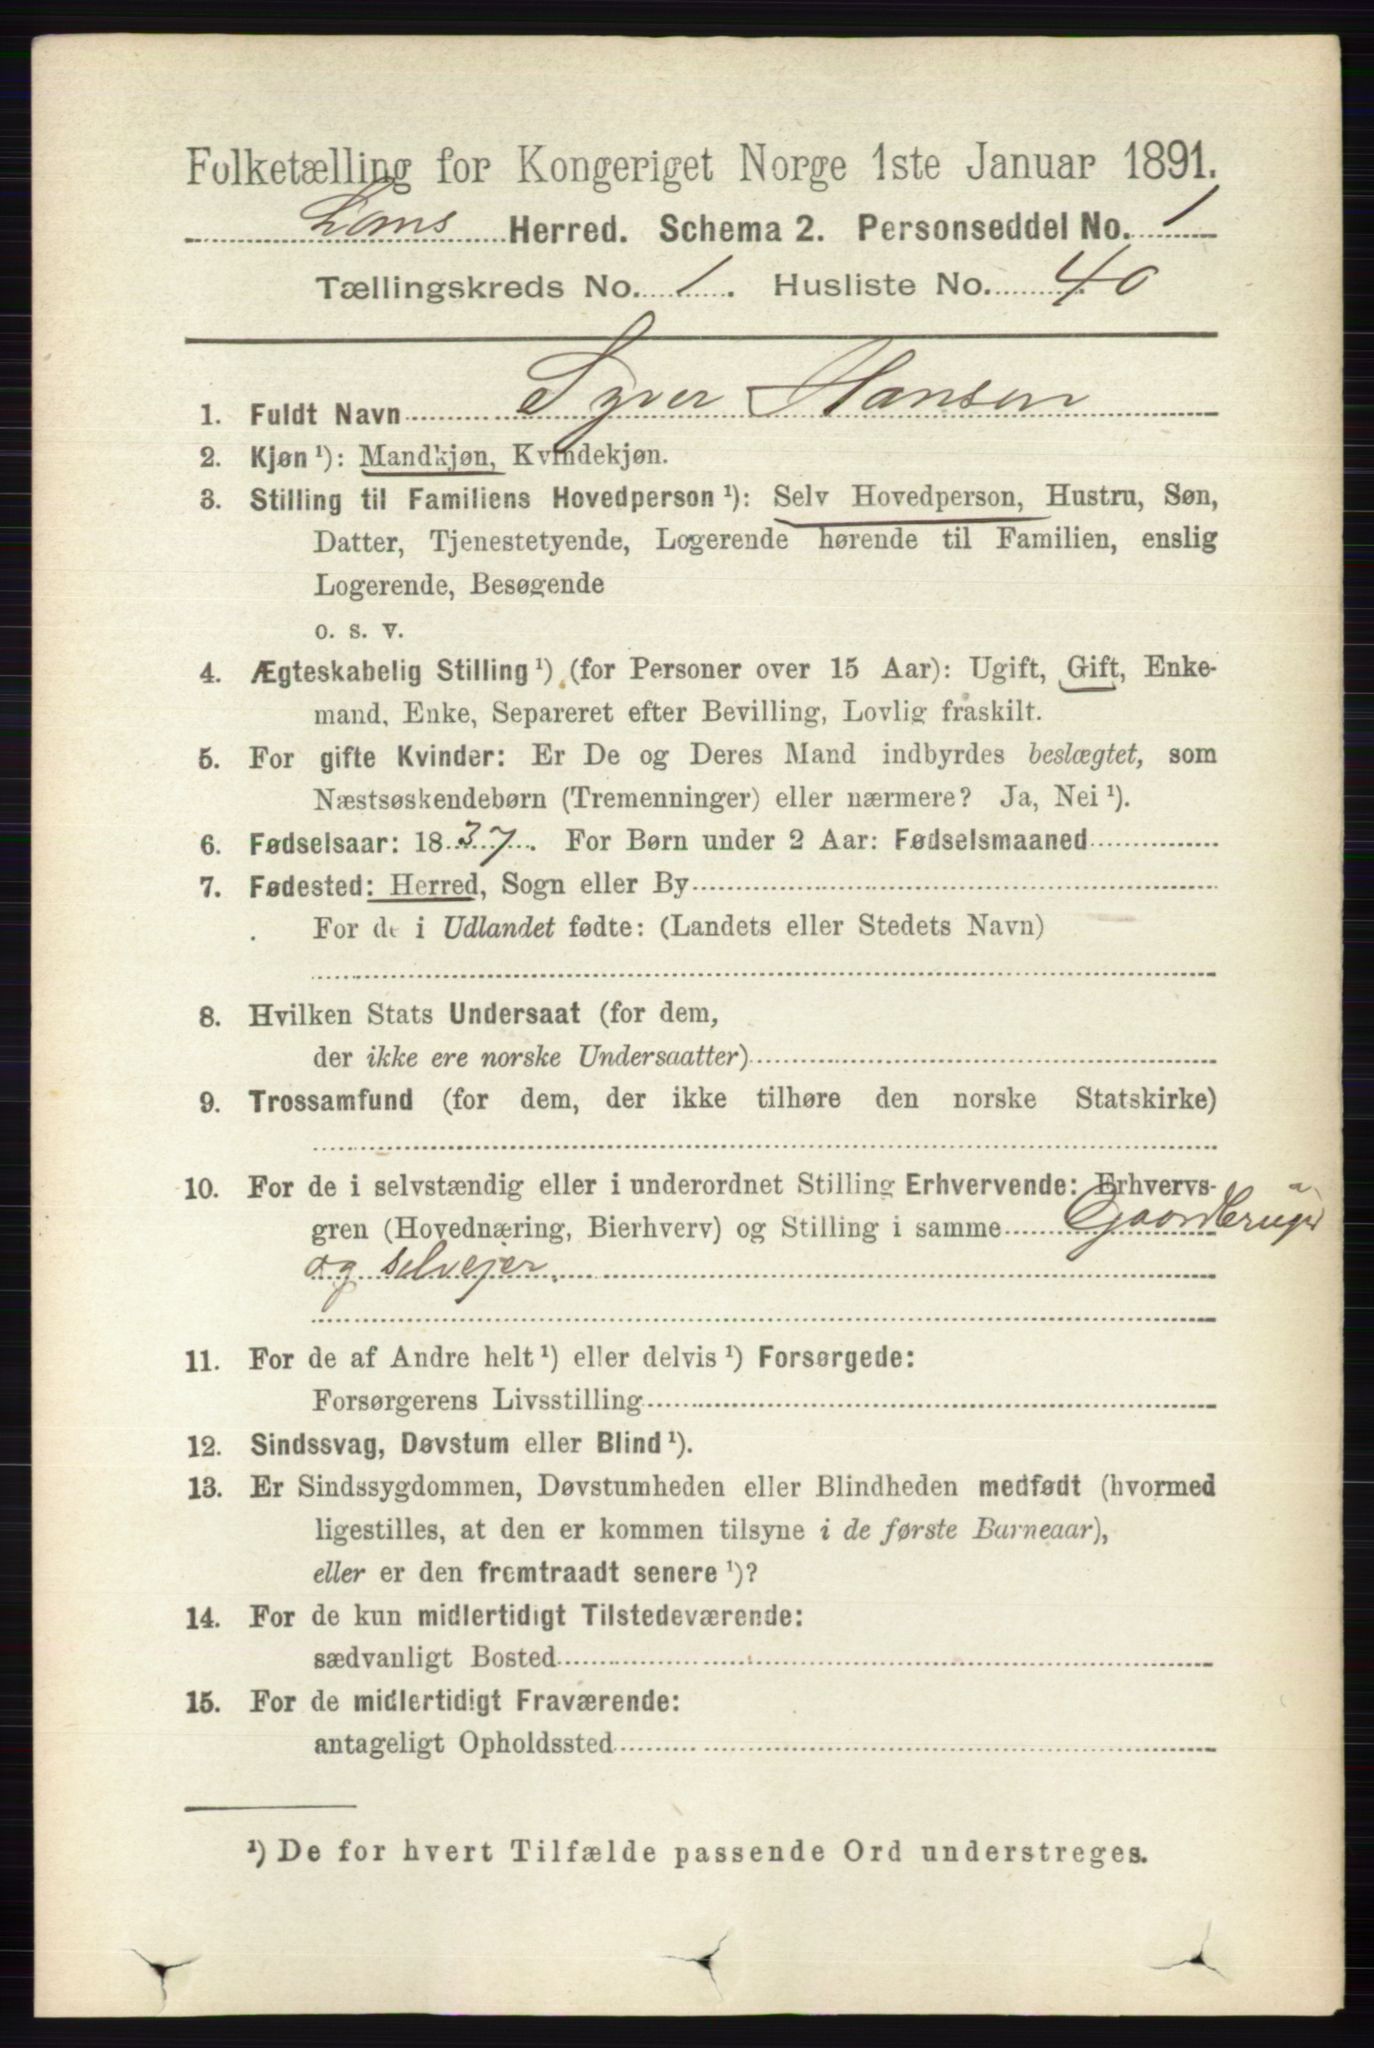 Folketælling for Kongeriget Norge 1ste Januar 1891.
Loms Herred. Schema 2. Personseddel No. 1
Tællingskreds No. 1. Husliste No. 40
1. Fuldt Navn Syver Hansen
2. Kjøn ¹): Mandkjøn, Kvindekjøn.
3. Stilling til Familiens Hovedperson ¹): Selv Hovedperson, Hustru, Søn,
Datter, Tjenestetyende, Logerende hørende til Familien, enslig
Logerende, Besøgende
o. s. v.
4. Ægteskabelig Stilling ¹) (for Personer over 15 Aar): Ugift, Gift, Enke-
mand, Enke, Separeret efter Bevilling, Lovlig fraskilt.
5. For gifte Kvinder: Er De og Deres Mand indbyrdes beslægtet, som
Næstsøskendebørn (Tremenninger) eller nærmere? Ja, Nei ¹).
6. Fødselsaar: 1837. For Børn under 2 Aar: Fødselsmaaned
7. Fødested: Herred, Sogn eller By
For de i Udlandet fødte: (Landets eller Stedets Navn)
8. Hvilken Stats Undersaat (for dem,
der ikke ere norske Undersaatter)
9. Trossamfund (for dem, der ikke tilhøre den norske Statskirke)
10. For de i selvstændig eller i underordnet Stilling Erhvervende: Erhvervs-
gren (Hovednæring, Bierhverv) og Stilling i samme Gaardbruger
og selvejer.
11. For de af Andre helt ¹) eller delvis ¹) Forsørgede:
Forsørgerens Livsstilling
12. Sindssvag, Døvstum eller Blind ¹).
13. Er Sindssygdommen, Døvstumheden eller Blindheden medfødt (hvormed
ligestilles, at den er kommen tilsyne i de første Barneaar),
eller er den fremtraadt senere ¹)?
14. For de kun midlertidigt Tilstedeværende:
sædvanligt Bosted
15. For de midlertidigt Fraværende:
antageligt Opholdssted
¹) De for hvert Tilfælde passende Ord understreges.